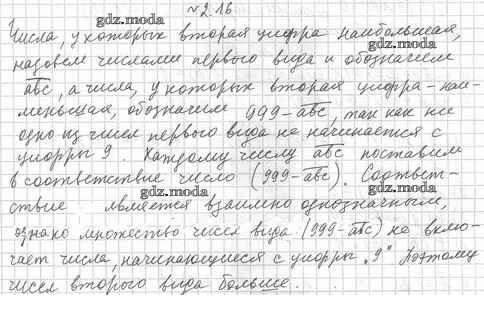 №2.16
gdz.moda
Числа, у которых вторая цифра наибольшая,
gdz.moda
назовем числами первого вида и обозначаем
abc, а числа, у которых вторая цифра - наи-
gdz.moda
меньшая, обозначаем 999-abc, так как не
одно из чисел первого вида не начинается с
gdz.moda
цифры 9. Каждому числу abc поставим
в соответствие число (999-abc). Соответ-
gdz.moda
ствие является взаимно однозначным,
gdz.moda
однако множество чисел вида (999-abc) не вклю-
чает числа, начинающиеся с цифры „9" Поэтому
gdz.moda
чисел второго вида больше.